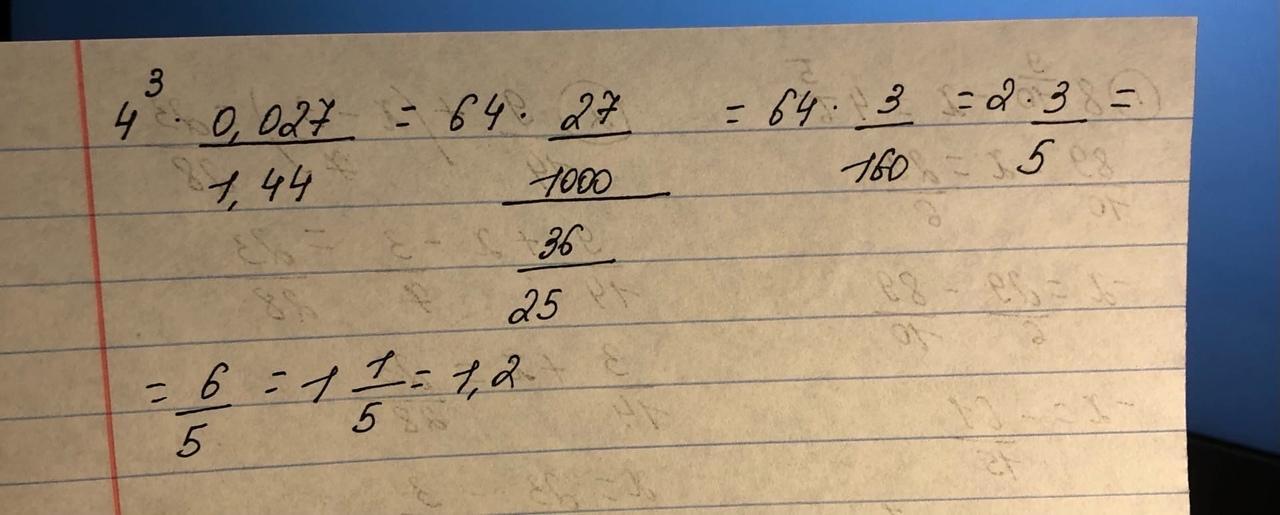 4³ · 0,027/1,44 = 64 · 27/1000/36/25 = 64 · 3/160 = 2 · 3/5 =
= 6/5 = 1 1/5 = 1,2